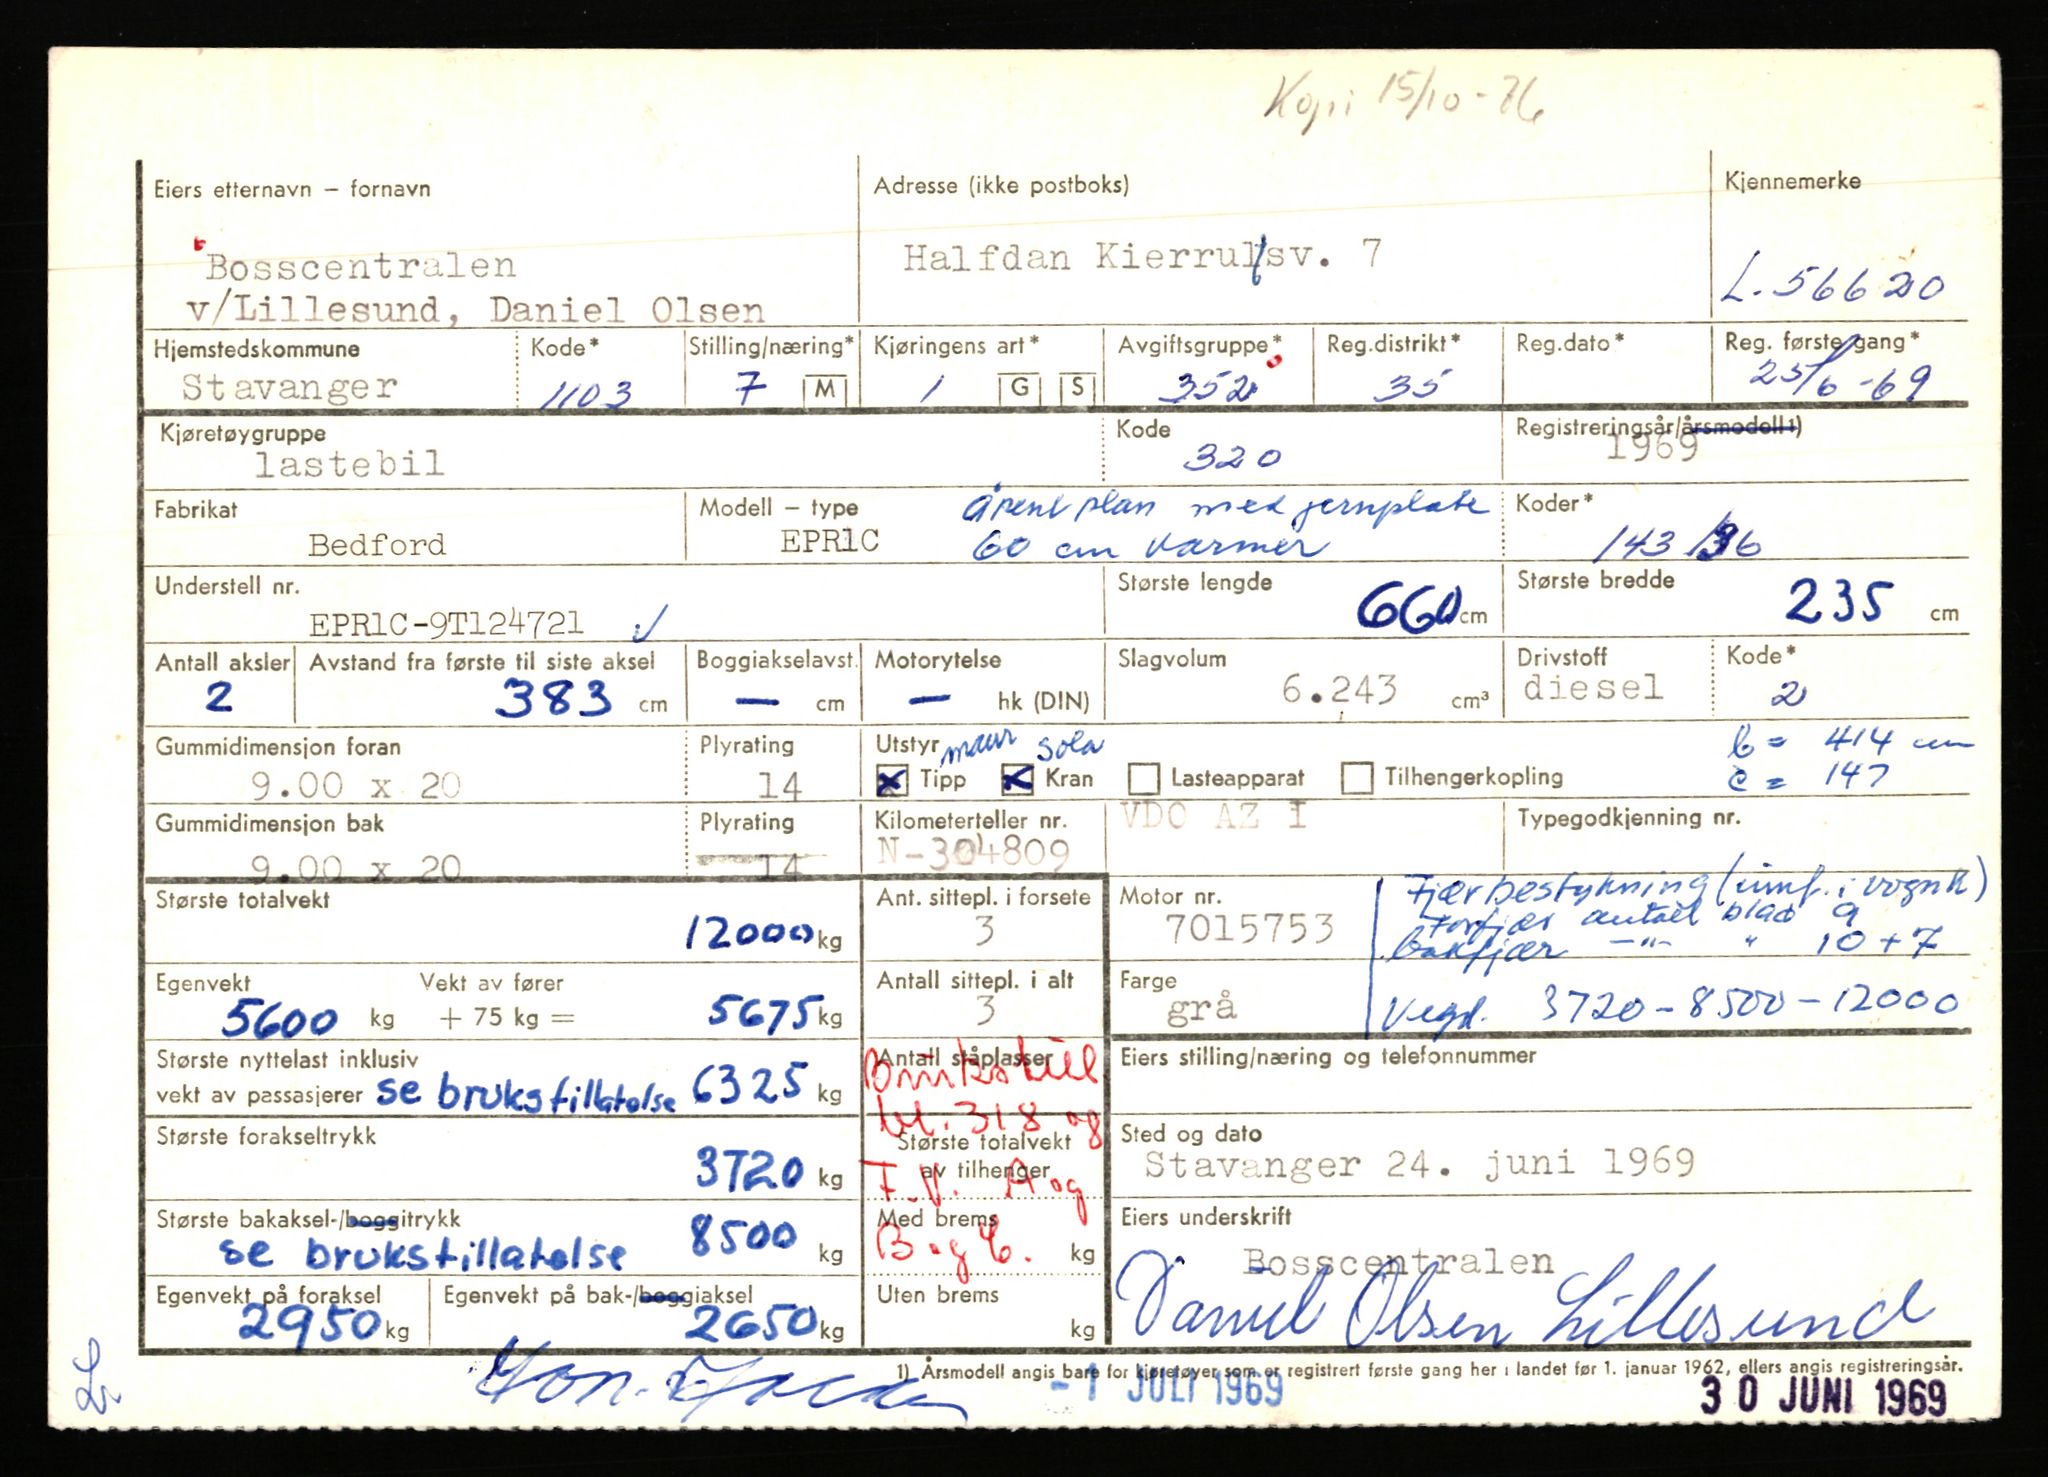 Kopi 15/10-76
Eiers etternavn – fornavn
Bosscentralen
v/Lillesund, Daniel Olsen
Adresse (ikke postboks)
Halfdan Kierrulfsv. 7
Kjennemerke
L-56620
Hjemstedskommune
Stavanger
Kode*
1103
Stilling/næring*
7 M
Kjøringens art*
1 G S
Avgiftsgruppe*
352
Reg.distrikt*
35
Reg.dato*
Reg. første gang*
25/6-69
Kjøretøygruppe
lastebil
Kode
320
Registreringsår/årsmodell 1)
1969
Fabrikat
Bedford
Modell – type
EPR1C
åpent plan med jernplate
60 cm varmer
Koder*
143/36
Understell nr.
EPR1C-9T124721
Største lengde
660 cm
Største bredde
235 cm
Antall aksler
2
Avstand fra første til siste aksel
383 cm
Boggiakselavst.
— cm
Motorytelse
— hk (DIN)
Slagvolum
6.243 cm³
Drivstoff
diesel
Kode*
2
Gummidimensjon foran
9.00 x 20
Plyrating
14
Utstyr
Tipp Kran Lasteapparat Tilhengerkopling
b = 414 cm
c = 147
Gummidimensjon bak
9.00 x 20
Plyrating
14
Kilometerteller nr.
N-304809
VDO AZ 1
Typegodkjenning nr.
Største totalvekt
12000 kg
Ant. sittepl. i forsete
3
Motor nr.
7015753
Fjærbestykning (innf. i vognk)
Forfjær antall blad 9
bakfjær —"— " 10 + 7
Egenvekt
5600 kg
Vekt av fører
+ 75 kg =
5675 kg
Antall sittepl. i alt
3
Farge
grå
Vegd. 3720-8500-12000
Største nyttelast inklusiv
vekt av passasjerer se brukstillatelse 6325 kg
Antall ståplasser
Brukstill
bl. 318 og
F.V. A og
B og C.
Eiers stilling/næring og telefonnummer
Største forakseltrykk
3720 kg
Største totalvekt
av tilhenger
Sted og dato
Stavanger 24. juni 1969
Største bakaksel-/boggitrykk
se brukstillatelse 8500 kg
Med brems
kg
Eiers underskrift
Bosscentralen
Daniel Olsen Lillesund
Egenvekt på foraksel
2950 kg
Egenvekt på bak-/boggiaksel
2650 kg
Uten brems
kg
1) Årsmodell angis bare for kjøretøyer som er registrert første gang her i landet før 1. januar 1962, ellers angis registreringsår.
- 1 JULI 1969
30 JUNI 1969